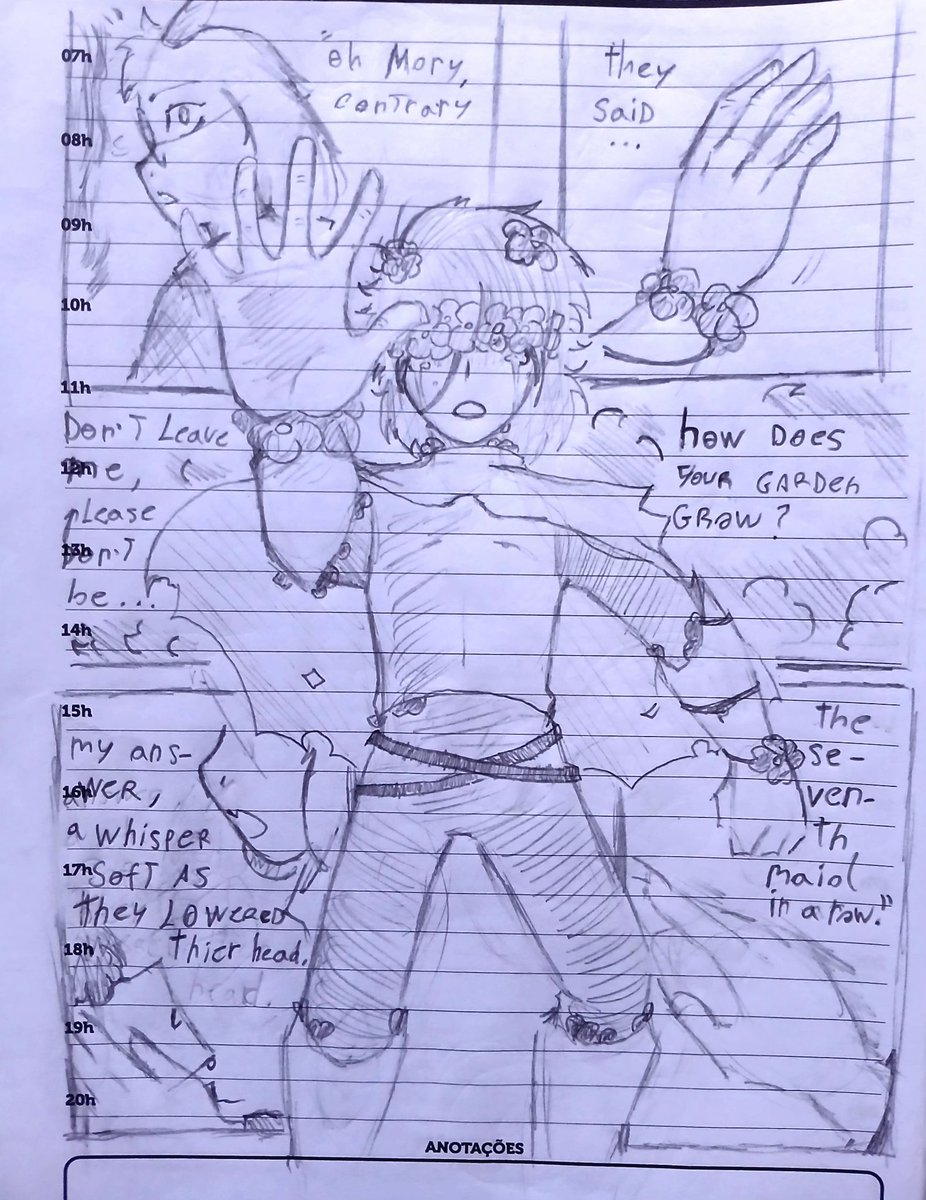 07h
08h
09h
10h
11h
12h
13h
14h
15h
16h
17h
18h
19h
20h
"oh Mory,
conTrary
they
SaiD
...
Don'T Leave
me,
pLease
Don'T
be...
how Does
your GARDEN
GRow ?
my ans-
wER,
a whisPER
SofT AS
they LoweRED
thier head.
head.
the
se-
ven-
th
maid
in a row."
ANOTAÇÕES